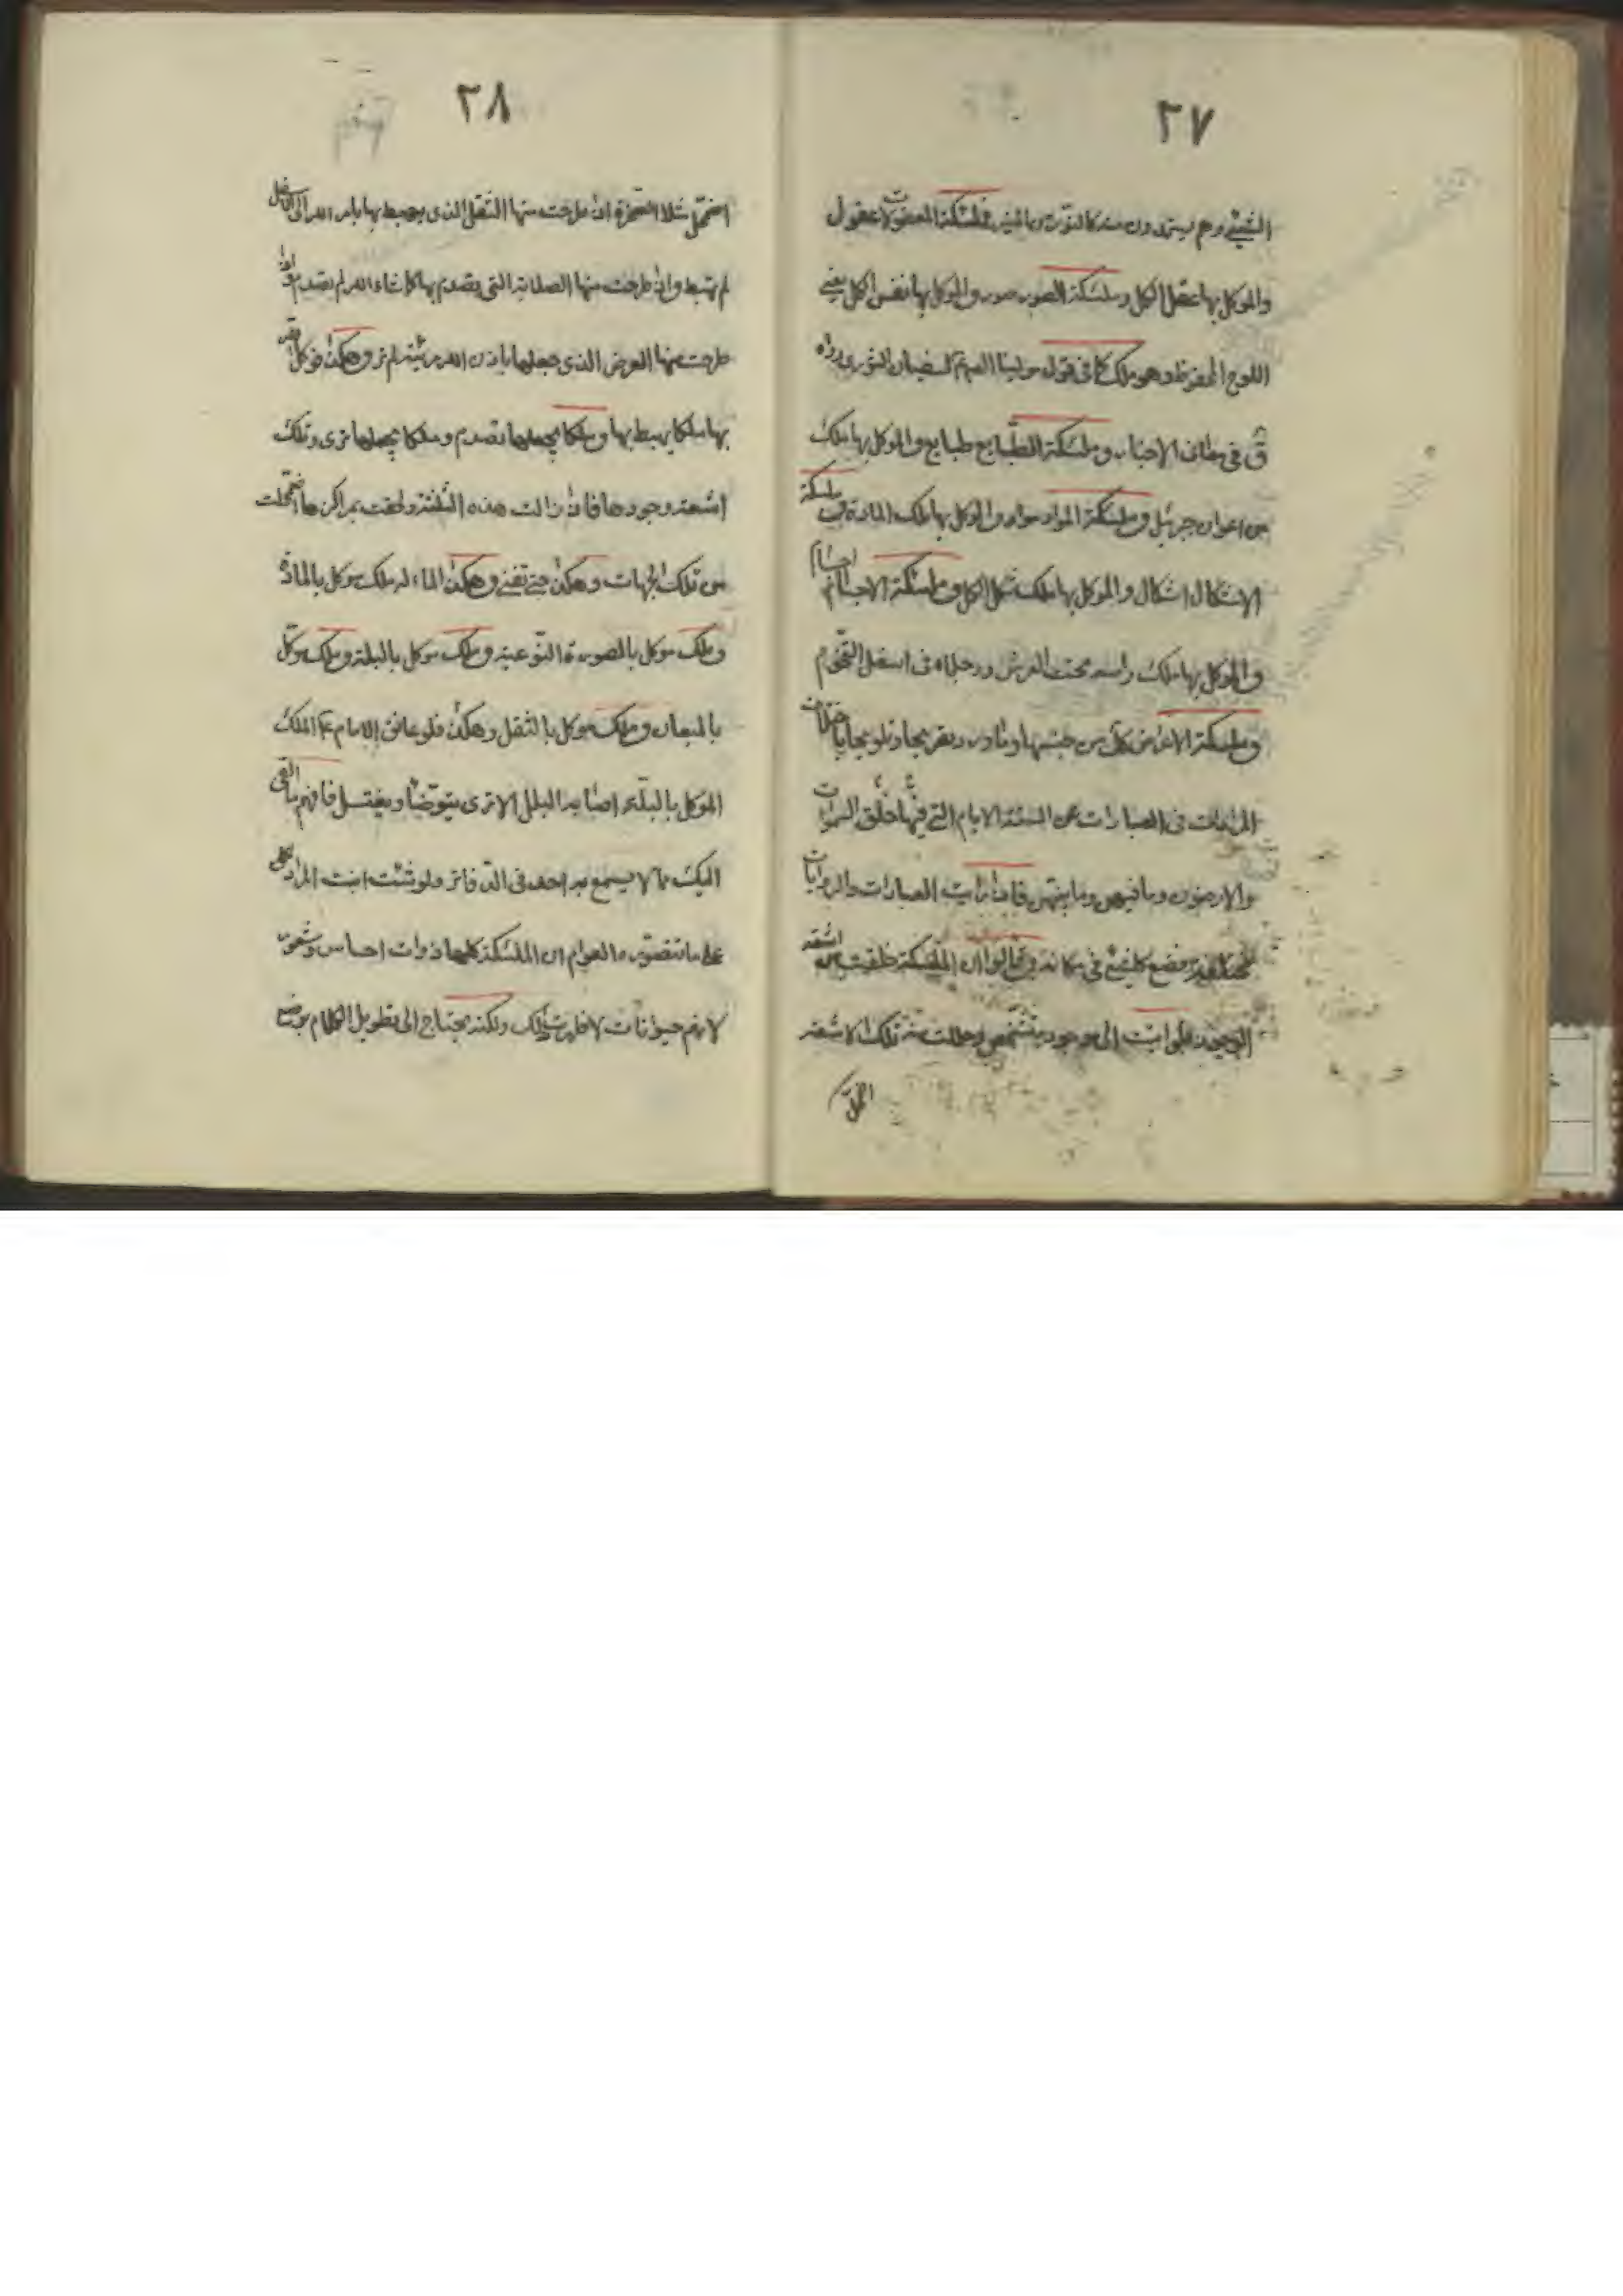 ٢٧
وهم يستمدون منه فملئكة العقول عقول
والموكل بها عقل الكل وملئكة الصور صور والموكل بها نفس الكل يعني
اللوح المحفوظ وهو ملك كما في قول لسفيان الثوري رواه
ق في معاني الاخبار وملئكة الطبايع طبايع والموكل بها ملك
من اعوان جبرئيل وملئكة المواد مواد والموكل بها ملك المادة وملئكة
الاشكال اشكال والموكل بها ملك شكل الكل وملئكة الاجسام اجسام
والموكل بها ملك راسه تحت العرش ورجلاه في اسفل التخوم
وملئكة الاعراض كل من جنسها
في العبارات عن الستة الايام التي فيها خلق السموات
والارضون وما فيهن وما بينهن فاذا رايت العبارات والروايات
فضع كل شيء في مكانه وقالوا ان الملئكة خلقت من اشعة
فلو اتيت الى موجود متشخص وحللت منه تلك الاشعة
اضمحل
٢٨
اضمحل مثلا الصخرة اذا طرحت منها الثقل الذي يهبط بها بامر الله الى اسفل
لم تهبط واذا طرحت منها الصلابة التي تصدم بها كما شاء الله لم تصدم واذا
طرحت منها العرض الذي جعلها باذن الله مرئية لم تر وهكذا فوكل
بها ملكا يهبط بها وملكا يجعلها تصدم وملكا يجعلها ترى وتلك
اشعة وجودها فاذا زالت هذه الثلثة ولحقت بمراكزها اضمحلت
من تلك الجهات وهكذا حتى تفنى وهكذا الماء له ملك موكل بالمادة
وملك موكل بالصورة النوعية وملك موكل بالبلة وملك موكل
بالميعان وملك موكل بالثقل وهكذا فلو عانق الامام ع الملك
الموكل بالبلة اصابه البلل الا ترى يتوضأ ويغتسل فافهم ما القى
اليك مما لا يسمع به احد في الدفاتر ولو شئت اثبت المراد
على ما تتصوره العوام ان الملئكة كلها ذوات احساس وشعور
لانهم حيوانات ولكنه يحتاج الى تطويل الكلام